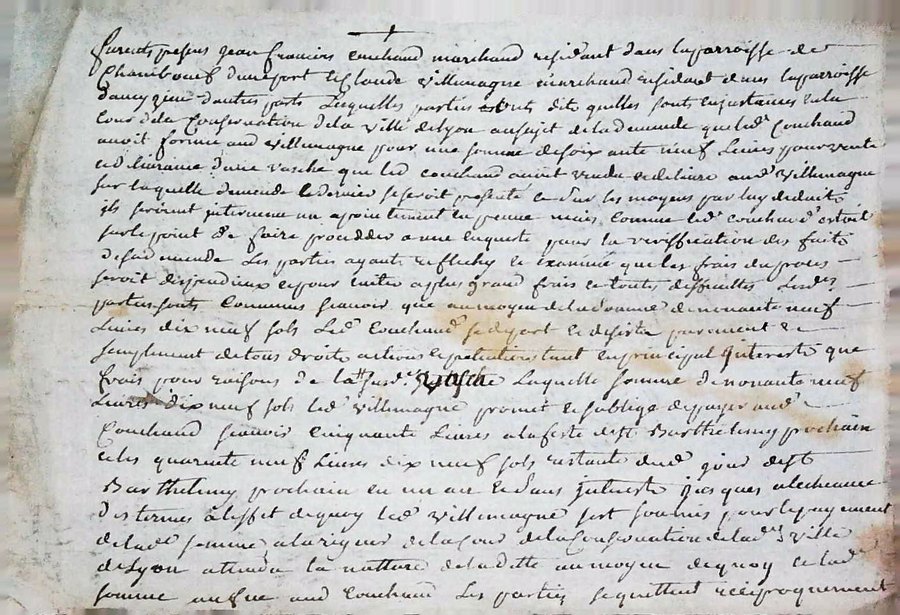 furent presens jean francois Couchaud marchand residant dans laparroisse de
Chambouf dunepart et Claude Villemagne marchand residant dans laparroisse
daveyzine dautres parts Lesquelles parties ont dit quelles sont enjnstances en la
Cour dela Conservation dela ville de Lyon ausujet delademande queled. Couchaud
avoit formée aud Villemagne pour une somme desoixante neuf Livres pour vente
et delivrance d'une vasche que led couchaud avoit vendu et delivré aud. Villemagne
sur laquelle demande le dernier seseroit presenté et sur les moyens par luy deduits
ils seroient intervenu un apointement en penne mais Comme led. couchaud estoit
sur le point de faire proceder a une enqueste pour la veriffication des faits
desademande Les parties ayant reflechy et examiné que les frais du proces
seroit dispendieux et pour eviter a plus grand frais et toutes difficultes Lesdes
parties sont Convenus scavoir que aumoyen delasomme denonante neuf
Livres dix neuf sols Led. Couchaud sedepart et desiste purement et
simplement detous droits actions et petitions tant en principal Interests que
frais pour raisons de lad. vasche Laquelle somme denonante neuf
Livres dix neuf sols led. villemagne promet et soblige depayer aud.
Couchaud scavoir Cinquante Livres a lafeste de st Barthelemy prochain
et les quarente neuf Livres dix neuf sols restants dud. jour de st
Barthelemy prochain en un an et sans Interests jusques a lecheance
des termes à leffet dequoy led. villemagne sest soumis pour lepayement
delad. somme a larigueur delaCour delaConservation delad. ville
deLyon attendu la natture deladette au moyen dequoy et lad.
somme aud Couchaud Les parties sequittent reciproquement